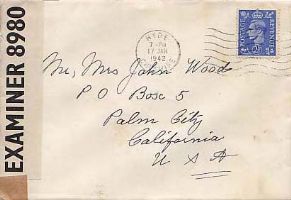 EXAMINER 8980
HYDE
7-PM
17 JAN
1942
POSTAGE REVENUE
Mr, Mrs John Wood
P O Box 5
Palm City
California
U S A